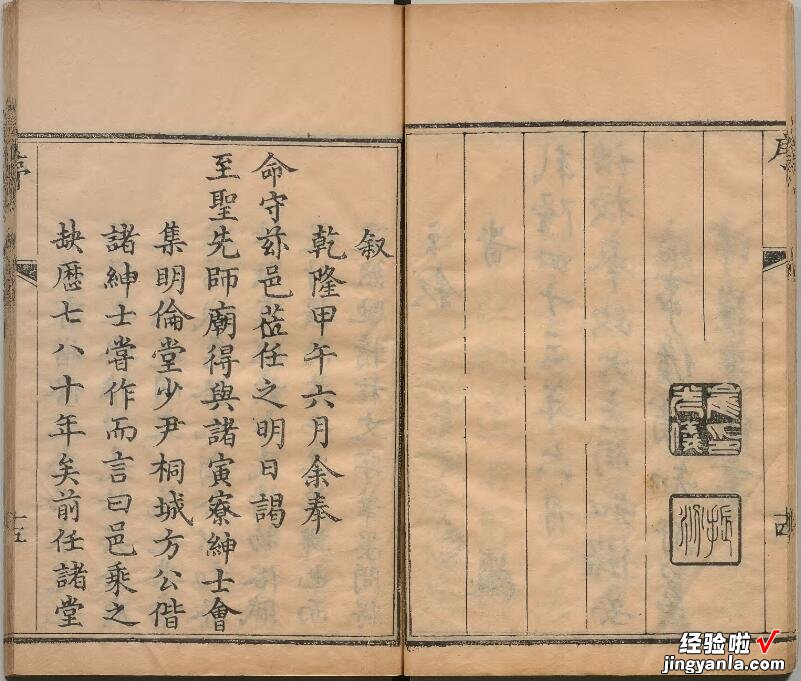 序
叙
乾隆甲午六月余奉
命守茲邑莅任之明日謁
至聖先師廟得與諸寅寮紳士會
集明倫堂少尹桐城方公偕
諸紳士嘗作而言曰邑乘之
缺歷七八十年矣前任諸堂
序
十五
经验啦
jingyanla.com